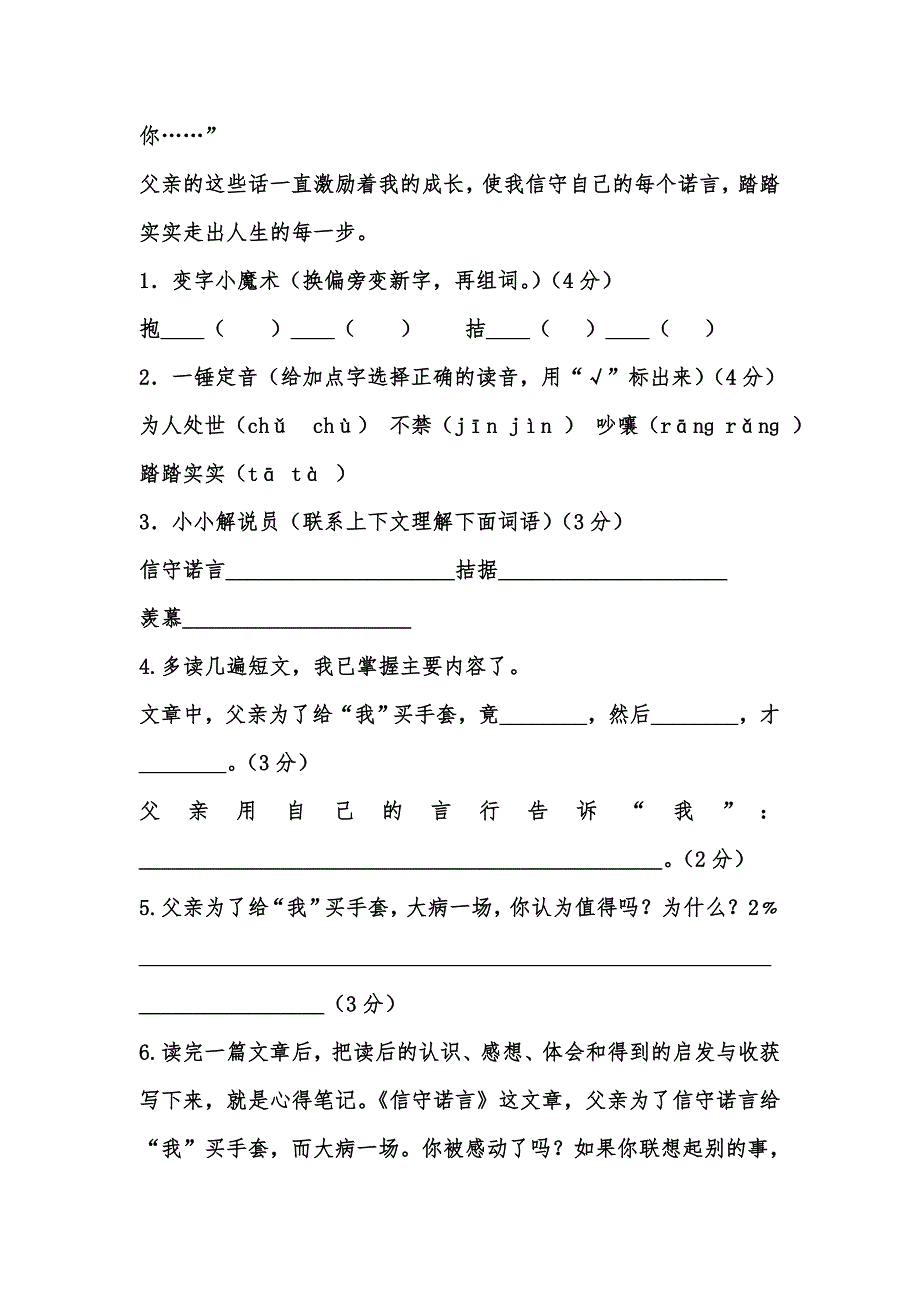 你……”
父亲的这些话一直激励着我的成长，使我信守自己的每个诺言，踏踏
实实走出人生的每一步。
1．变字小魔术（换偏旁变新字，再组词。）（4分）
抱____（    ）____（    ）    拮____（   ）____（   ）
2．一锤定音（给加点字选择正确的读音，用“√”标出来）（4分）
为人处世（chǔ  chù） 不禁（jīn jìn ） 吵嚷（rāng rǎng ）
踏踏实实（tā tà ）
3．小小解说员（联系上下文理解下面词语）（3分）
信守诺言_____________________拮据_____________________
羡慕_____________________
4.多读几遍短文，我已掌握主要内容了。
文章中，父亲为了给“我”买手套，竟________，然后________，才
________。（3分）
父亲用自己的言行告诉“我”：
________________________________________________。（2分）
5.父亲为了给“我”买手套，大病一场，你认为值得吗？为什么？2％
__________________________________________________________
_________________（3分）
6.读完一篇文章后，把读后的认识、感想、体会和得到的启发与收获
写下来，就是心得笔记。《信守诺言》这文章，父亲为了信守诺言给
“我”买手套，而大病一场。你被感动了吗？如果你联想起别的事，